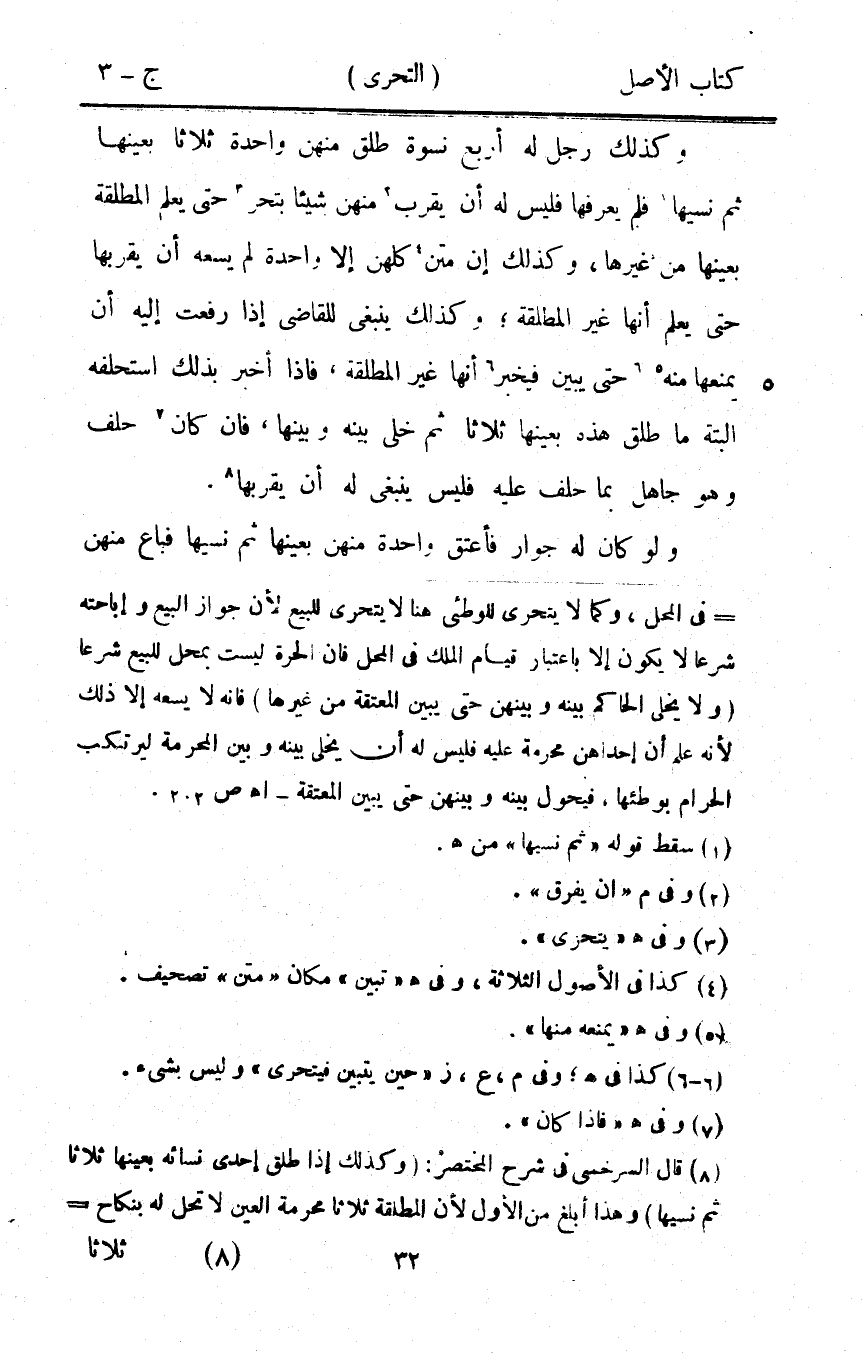 كتاب الأصل ( التحرى ) ج - ٣
و كذلك رجل له أربع نسوة طلق منهن واحدة ثلاثا بعينهـا
ثم نسيها١ فلم يعرفها فليس له أن يقرب٢ منهن شيئا بتحر٣ حتى يعلم المطلقة
بعينها من غيرها ، و كذلك إن متن٤ كلهن إلا واحدة لم يسعه أن يقربها
حتى يعلم أنها غير المطلقة ؛ و كذلك ينبغى للقاضى إذا رفعت إليه أن
٥ يمنعها منه٥ ٦حتى يبين فيخبر٦ أنها غير المطلقة ، فاذا أخبر بذلك استحلفه
البتة ما طلق هذه بعينها ثلاثا ثم خلى بينه و بينها ، فان كان٧ حلف
و هو جاهل بما حلف عليه فليس ينبغى له أن يقربها٨ .
و لو كان له جوار فأعتق واحدة منهن بعينها ثم نسيها فباع منهن
= فى المحل ، و كما لا يتحرى للوطئى هنا لا يتحرى للبيع لأن جواز البيع و إباحته
شرعا لا يكون إلا باعتبار قيـام الملك فى المحل فان الحرة ليست بمحل للبيع شرعا
( و لا يخلى الحاكم بينه و بينهن حتى يبين المعتقة من غيرها ) فانه لا يسعه إلا ذلك
لأنه علم أن إحداهن محرمة عليه فليس له أن يخلى بينه و بين المحرمة ليرتكب
الحرام بوطئها ، فيحول بينه و بينهن حتى يبين المعتقة ـ اه ص ٢٠٢ .
(١) سقط قوله « ثم نسيها » من ه .
(٢) و فى م « ان يفرق » .
(٣) و فى ه « يتحزى » .
(٤) كذا فى الأصول الثلاثة ، و فى ه « تبين » مكان « متن » تصحيف .
(٥) و فى ه « يمنعه منها » .
(٦-٦) كذا فى ه ؛ و فى م ، ع ، ز « حين يتبين فيتحرى » و ليس بشىء .
(٧) و فى ه « فاذا كان » .
(٨) قال السرخسى فى شرح المختصر : ( و كذلك إذا طلق إحدى نسائه بعينها ثلاثا
ثم نسيها ) و هذا أبلغ من الأول لأن المطلقة ثلاثا محرمة العين لا تحل له بنكاح =
٣٢ (٨) ثلاثا